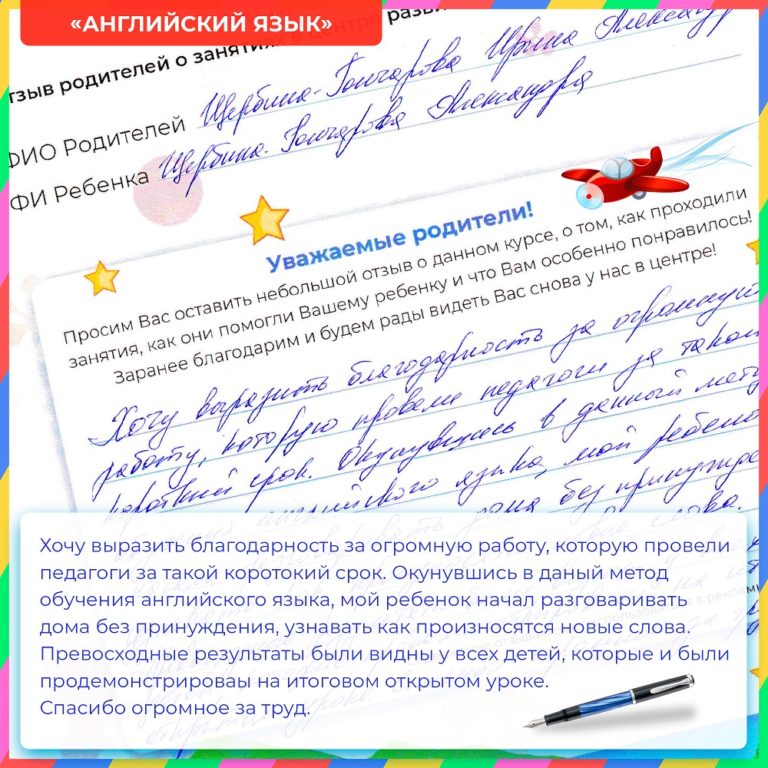 «АНГЛИЙСКИЙ ЯЗЫК»
тзыв родителей о занятиях в центре разви
ФИО Родителей Щербина-Гончарова Ирина Александр
ФИ Ребенка Щербина-Гончарова Александра
Уважаемые родители!
Просим Вас оставить небольшой отзыв о данном курсе, о том, как проходили
занятия, как они помогли Вашему ребенку и что Вам особенно понравилось!
Заранее благодарим и будем рады видеть Вас снова у нас в центре!
Хочу выразить благодарность за огромную
работу, которую провели педагоги за такой
короткий срок. Окунувшись в данный мето
английского языка, мой ребено
дома без принужде
слова.
Хочу выразить благодарность за огромную работу, которую провели
педагоги за такой коротокий срок. Окунувшись в даный метод
обучения английского языка, мой ребенок начал разговаривать
дома без принуждения, узнавать как произносятся новые слова.
Превосходные результаты были видны у всех детей, которые и были
продемонстрироваы на итоговом открытом уроке.
Спасибо огромное за труд.